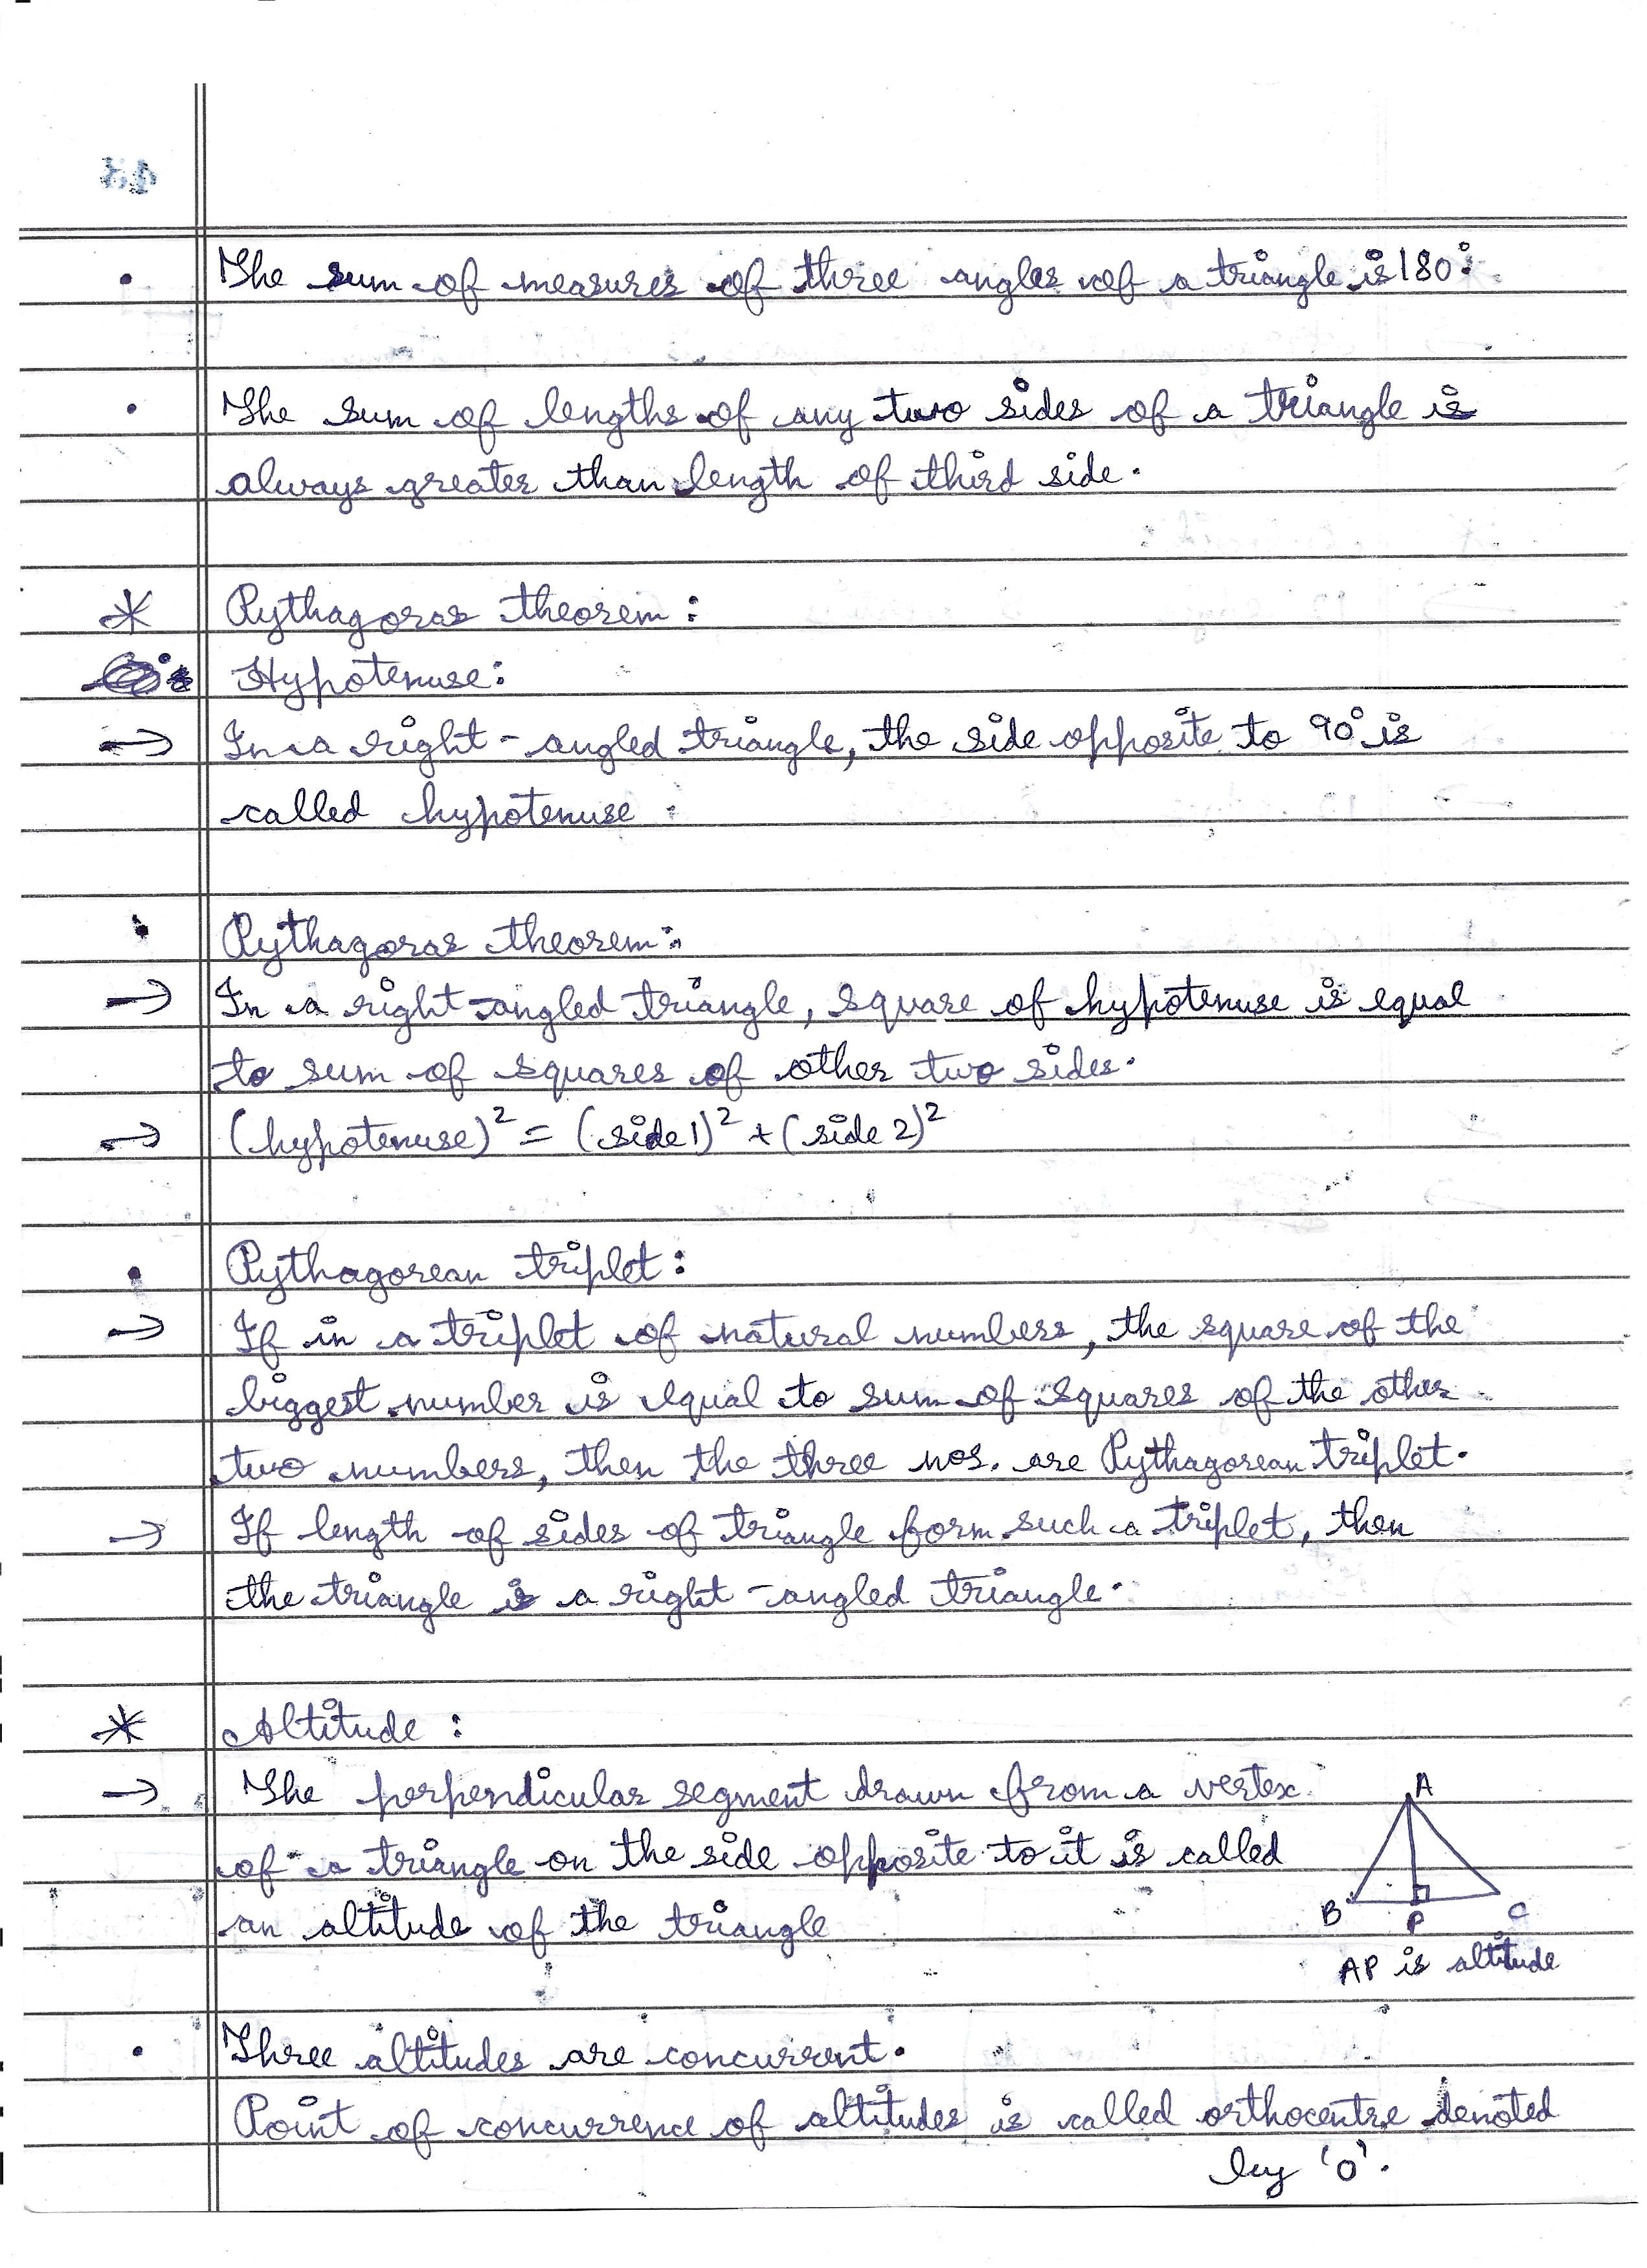 • The sum of measures of three angles of a triangle is 180°.
• The sum of lengths of any two sides of a triangle is
always greater than length of third side.
* Pythagoras theorem :
Hypotenuse:
→ In a right-angled triangle, the side opposite to 90° is
called hypotenuse.
• Pythagoras theorem:
→ In a right-angled triangle, square of hypotenuse is equal
to sum of squares of other two sides.
→ (hypotenuse)² = (side 1)² + (side 2)²
• Pythagorean triplet :
→ If in a triplet of natural numbers, the square of the
biggest number is equal to sum of squares of the other
two numbers, then the three nos. are Pythagorean triplet.
→ If length of sides of triangle form such a triplet, then
the triangle is a right-angled triangle.
* Altitude :
→ The perpendicular segment drawn from a vertex
of a triangle on the side opposite to it is called
an altitude of the triangle
A
B P C
AP is altitude
• Three altitudes are concurrent.
Point of concurrence of altitudes is called orthocentre denoted
by 'O'.